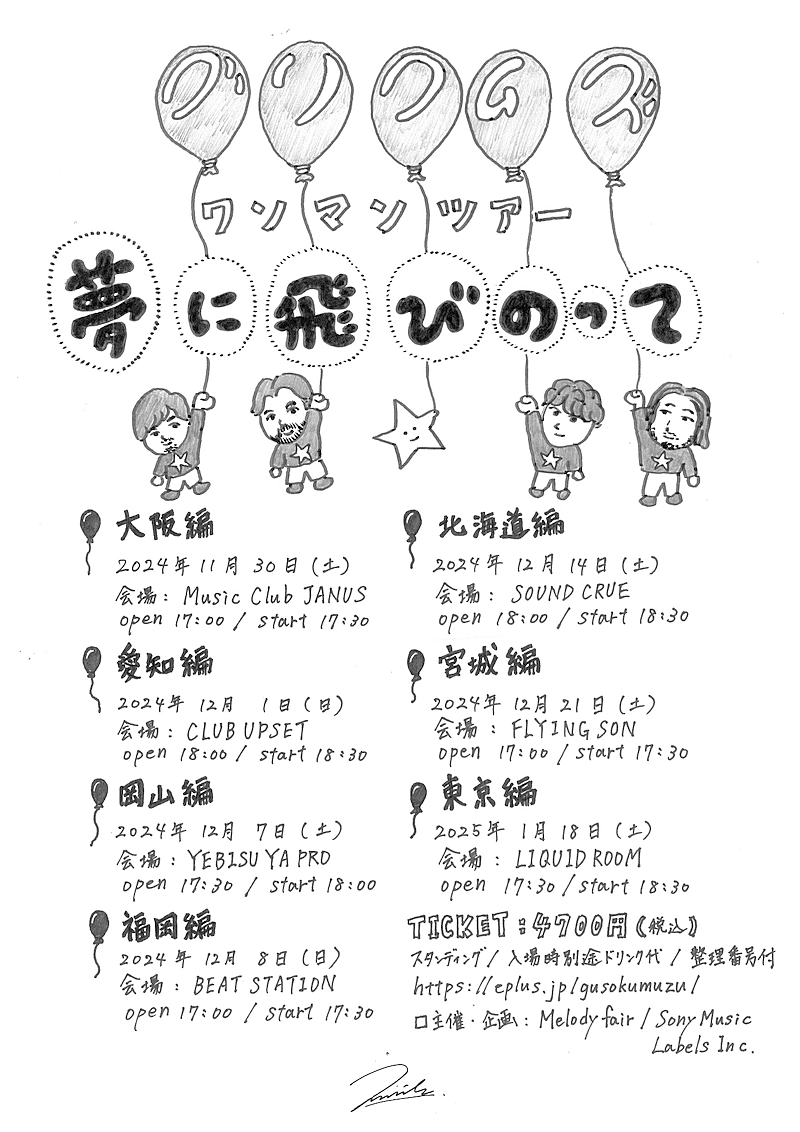 グソクムズ
ワンマンツアー
夢に飛びのって
大阪編
2024年 11月 30日 (土)
会場: Music Club JANUS
open 17:00 / start 17:30
愛知編
2024年 12月 1日 (日)
会場: CLUB UPSET
open 18:00 / start 18:30
岡山編
2024年 12月 7日 (土)
会場: YEBISU YA PRO
open 17:30 / start 18:00
福岡編
2024年 12月 8日 (日)
会場: BEAT STATION
open 17:00 / start 17:30
北海道編
2024年 12月 14日 (土)
会場: SOUND CRUE
open 18:00 / start 18:30
宮城編
2024年 12月 21日 (土)
会場: FLYING SON
open 17:00 / start 17:30
東京編
2025年 1月 18日 (土)
会場: LIQUID ROOM
open 17:30 / start 18:30
TICKET:4700円 (税込)
スタンディング / 入場時別途ドリンク代 / 整理番号付
https://eplus.jp/gusokumuzu/
□主催・企画: Melody fair / Sony Music
Labels Inc.